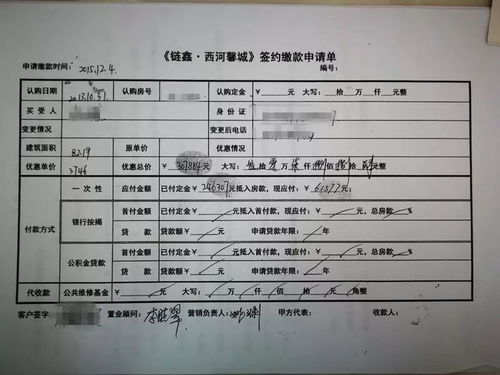 《链鑫·西河馨城》签约缴款申请单
申请缴款时间：2015.12.4.
编号：
认购日期 2013.10.31 认购房号 认购定金 ¥ 元 大写： 拾 万 仟 元整
买受人 身份证
变更情况 变更后电话
建筑面积 82.19 原单价 优惠情况
优惠单价 3746 优惠总价 ¥307884元 大写： 拾 万 仟 佰 拾 元整
付款方式 一次性 应付金额 已付定金¥246307元抵入房款，现应付：¥61577元；
银行按揭 首付金额 已付定金¥ 元抵入首付款，现应付：¥ 元，总房款 %
贷款 贷款额¥ 元 申请贷款年限： 年
公积金贷款 首付金额 已付定金¥ 元抵入首付款，现应付：¥ 元，总房款 %
贷款 贷款额¥ 元 申请贷款年限： 年
代收款 公共维修基金 ¥ 元 大写： 万 仟 佰 拾 元 角整
客户签字 置业顾问： 营销负责人： 甲方代表： 收款人：